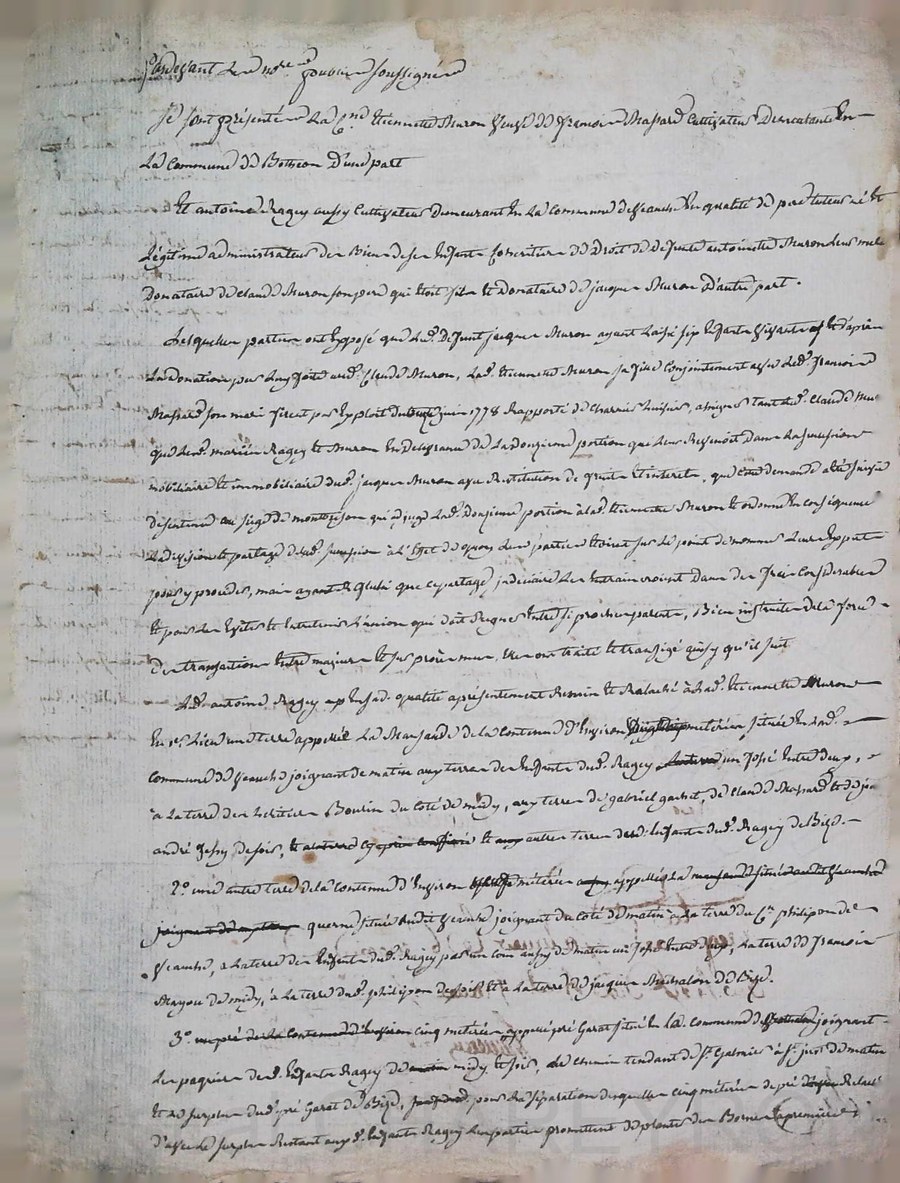 Pardevant Les nore public soussignés
Se sont présentés La Cne Etiennette Muron veuve de francois Massard Cultivateur Demeurante En
La Commune de Bothéon D'une part
Et antoine Ragey aussy Cultivateur Demeurant En La Commune de veauche En qualité de pere tuteur né et
Légitime administrateur des Biens de ses Enfants Heritiers de Droit de Défunte antoinette Muron Leur mere
Donataire de Claude Muron son pere qui Etoit fils et Donataire de jacques Muron D'autre part.
Lesquelles parties ont Exposé que Led. Défunt jacques Muron ayant Laissé six Enfants vivants et d'après
La donation par Luy faite aud. Claude Muron, Lad. Etiennette Muron sa fille Conjointement avec Led. francois
Massard son mari firent par Exploit du juin 1778 Rapporté de Charnier huissier, assigner tant Led. Claude Muron
que Les mariés Ragey et Muron En délivrance de La douzieme portion que Leur Revenoit Dans La succession
mobiliaire et immobiliaire dud. jacques Muron avec Restitution de fruits et interets, que cette demande a été suivie
de sentence au siège de montbrison qui adjuge Lad. Douzieme portion à lad. Etiennette Muron et ordonne En conséquence
La division et partage de lad. succession à l'Effet de quoy Les parties Etoient sur Le point de nommer Leurs Experts
pour y proceder, mais ayant Réfléchi que ce partage judiciaire Les Entraineroient Dans des frais Considerables
et pour Les Eviter et Entretenir L'union qui doit Regner Entre si proches parents, Bien instruites de la force
de transaction Entre majeurs et sur procès mu, Elles ont traité et transigé ainsy qu'il suit
Led. antoine Ragey En sad. qualité a présentement Remis et Relaché à Lad. Etiennette Muron
En 1er Lieu une terre appellée La Marjaude de la contenue d'Environ meterées située En Lad.
commune de veauche joignant de matin aux terres des Enfants dud. Ragey un fossé Entre deux,
à La terre des heritiers Bourin du Coté de midy, aux terres de gabriel garnet, de Claude Massard et de
andré de soir, et autres terres desd. Enfants dud. Ragey de Bize.
2° une autre terre de la Contenue d'Environ météré appellée La
querne située Audit veauche joignant du Coté de matin à La terre du Cn philipon de
veauche, à La terre des Enfants dud. Ragey par un Coin aussy de matin un fossé Entre deux, La terre de francois
Mayou de midy, à La terre dud. philipon de soir et à La terre de jacques Michalon de Bize.
3° un pré de la Contenue d'Environ cinq météré appellé pré Garat situé En la Commune de joignant
Les paquiers desd. Enfants Ragey de midy et soir, chemin tendant de St Galmier à St just de matin
et Le surplus dud. pré Garat de Bize, pour La séparation desquelles cinq météré de pré Relaché
d'avec Le surplus Restant auxd. Enfants Ragey Les parties promettent de planter des Bornes premiere